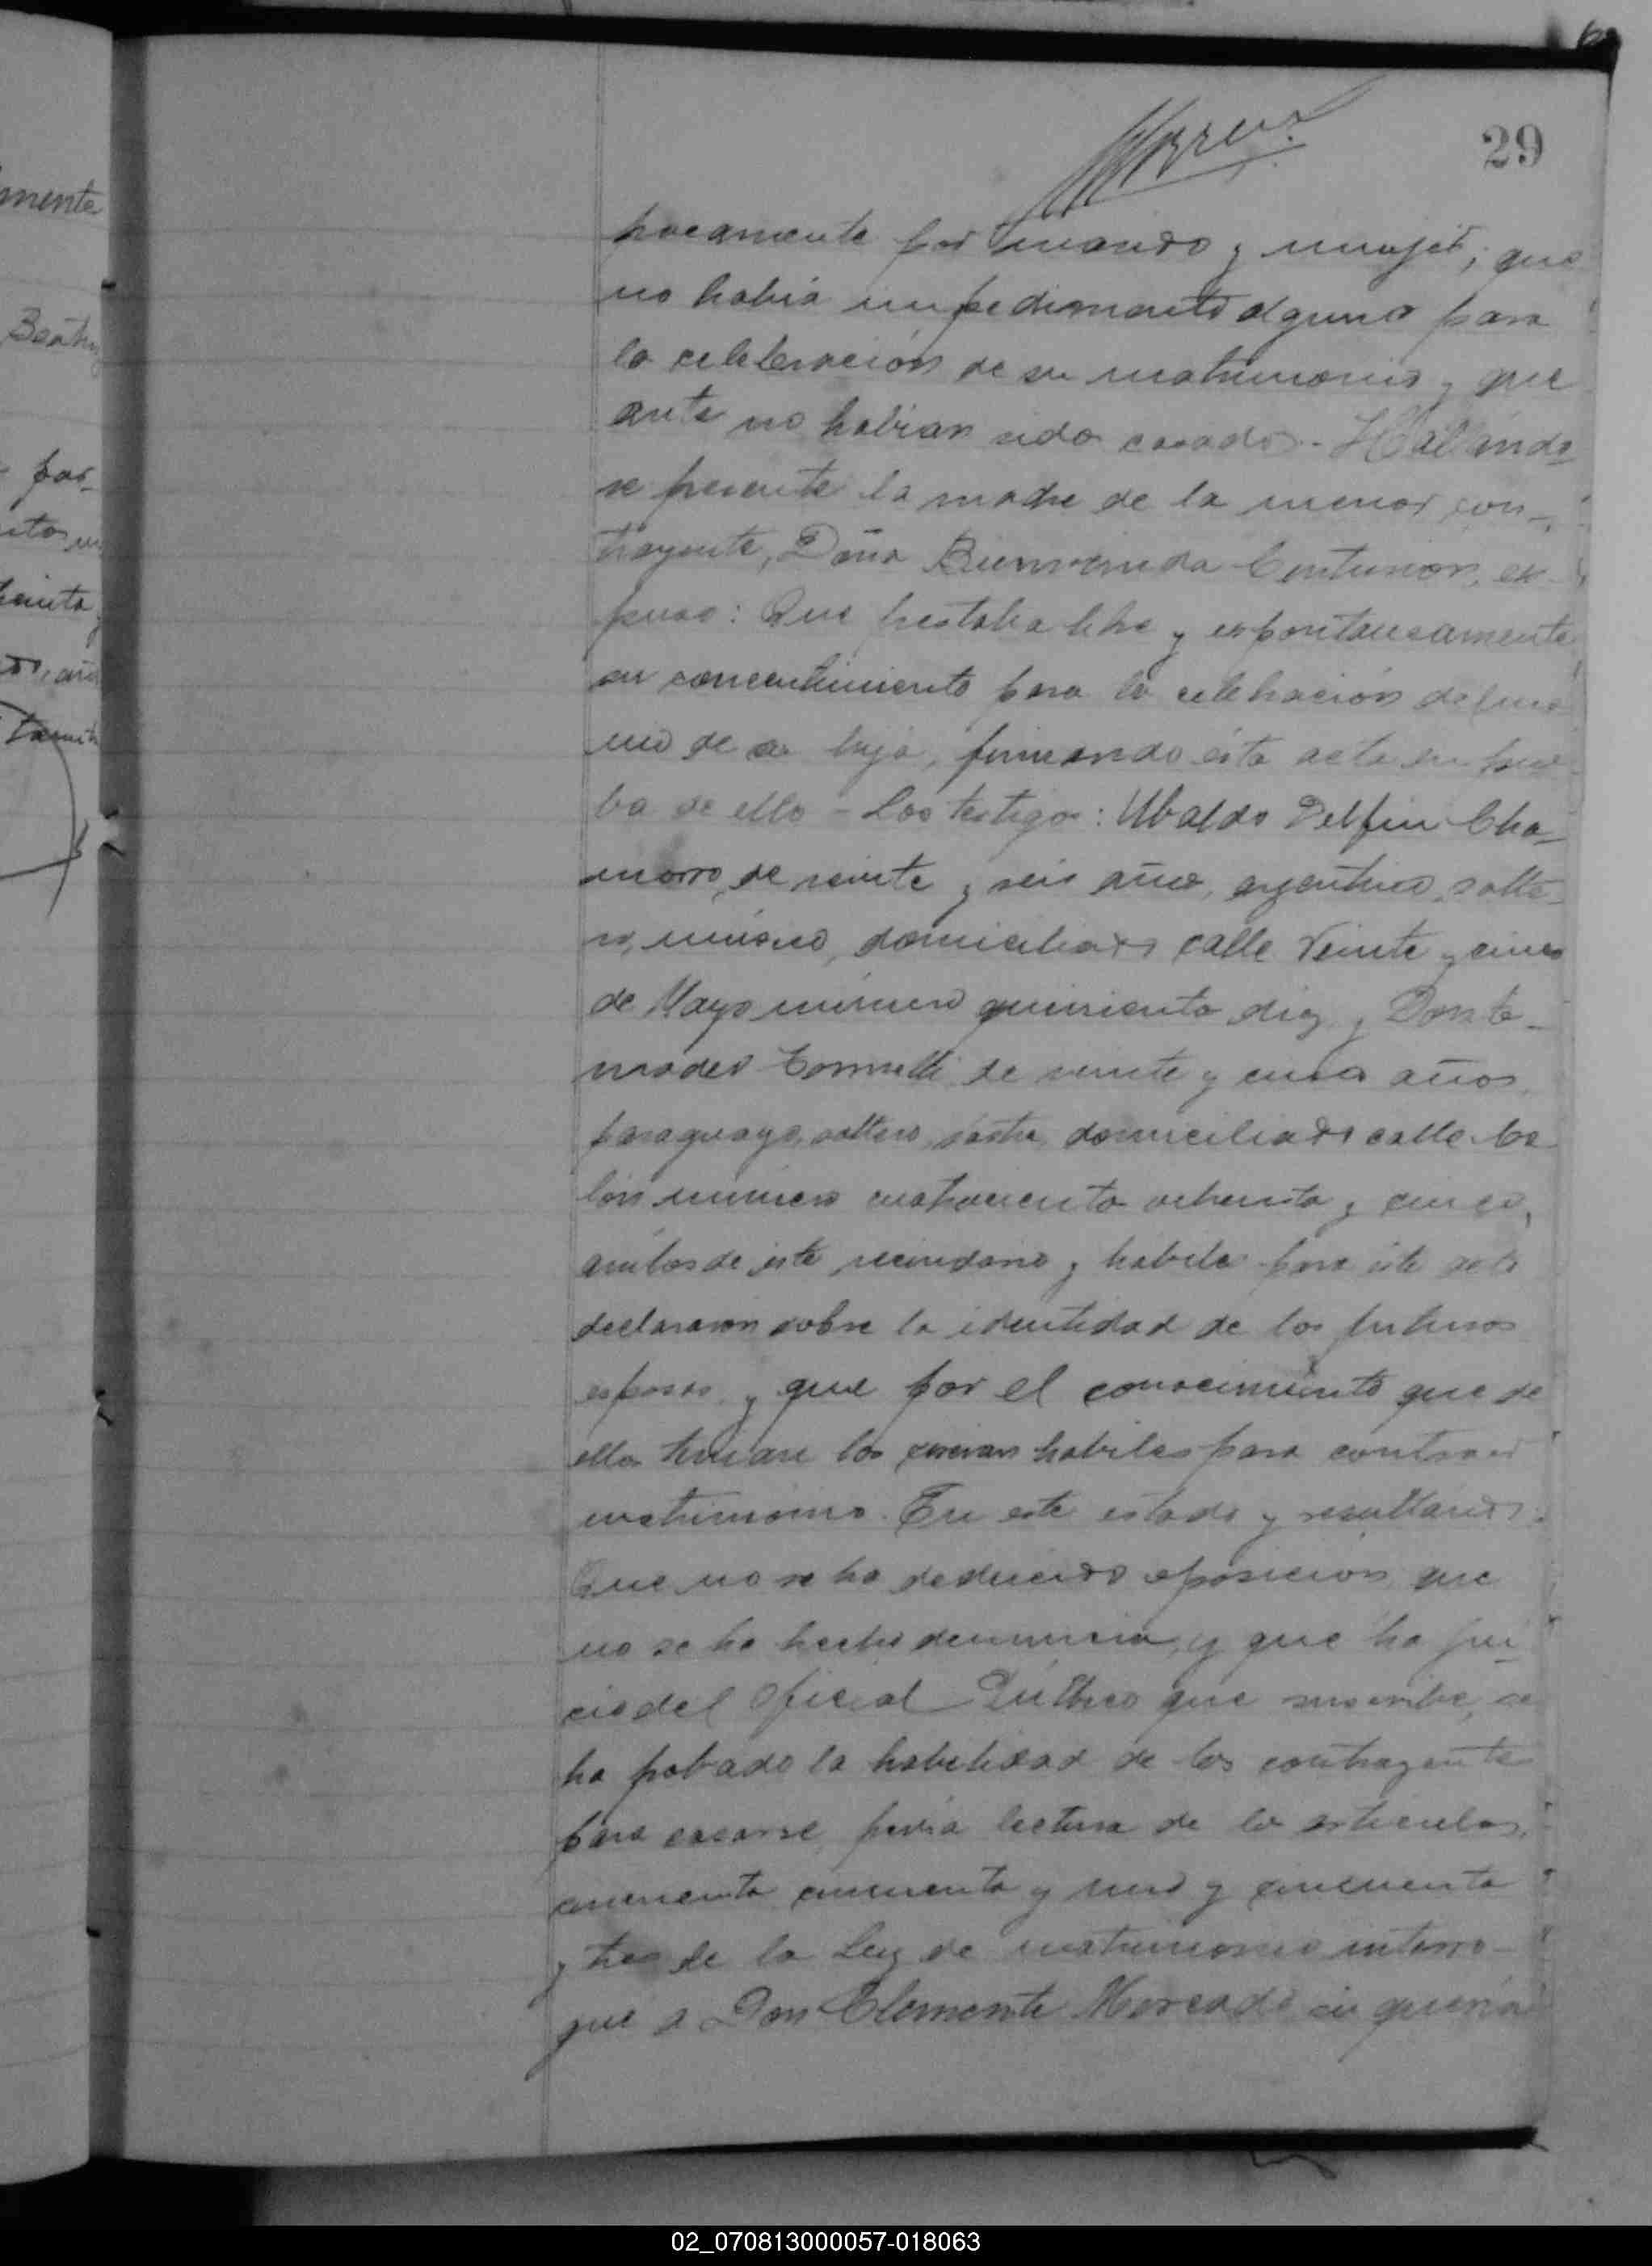 29
procamente por marido y mujer; que
no había impedimento alguno para
la celebración de su matrimonio y que
ante no habian sido casados.- Hallándo
se presente la madre de la menor con-
trayente, Doña Bienvenida Centurion, ex-
puso: Que prestaba libre y espontaneamente
su consentimiento para la celebración del
de su hija, firmando ésta acta en prue
ba de ello - Los testigos: Ubaldo Delfin Cha-
morro, de veinte y seis años, argentino, solte-
ro, músico, domiciliado calle Veinte y cinco
de Mayo número quinientos diez y Don
de veinte y cinco años
paraguayo, soltero, sastre, domiciliado calle Co
lón número cuatrocientos ochenta y cinco,
ambos de este vecindario y habiles para este acto
declararon sobre la identidad de los futuros
esposos y que por el conocimiento que de
ellos tenian los creian habiles para contraer
matrimonio. En este estado y resultando:
Que no se ha deducido oposición que
no se ha hecho denuncia, y que ha jui
cio del Oficial Público que suscribe, se
ha probado la habilidad de los contrayentes
para casarse, previa lectura de los articulos,
cincuenta, cincuenta y uno y cincuenta
y tres de la Ley de matrimonio interro-
gué a Don Clemente Mercado si queria
mente
Beatriz
por
02_070813000057-018063